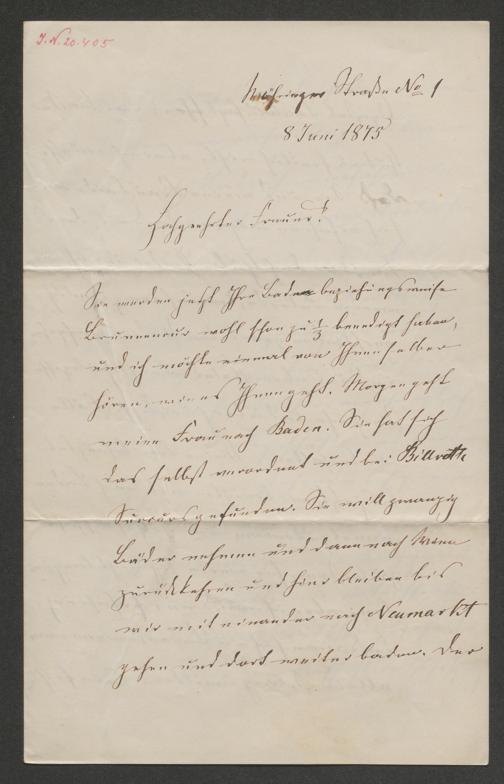 J. N. 20.405
Straße No 1
8 Juni 1875
Hochgeehrter Freund!
Sie werden jetzt Ihre Baden beziehungsweise
Brunnencur wohl schon zu 1/3 beendigt haben,
und ich möchte einmal von Ihnen selber
hören, wie es Ihnen geht. Morgen geht
meine Frau nach Baden. Sie hat sich
das selbst verordnet und bei Billroth
Succurs gefunden. Sie will zwanzig
Bäder nehmen und dann nach Wien
zurückkehren und hier bleiben bis
wir mit einander nach Neumarkt
gehen und dort weiter baden. Der